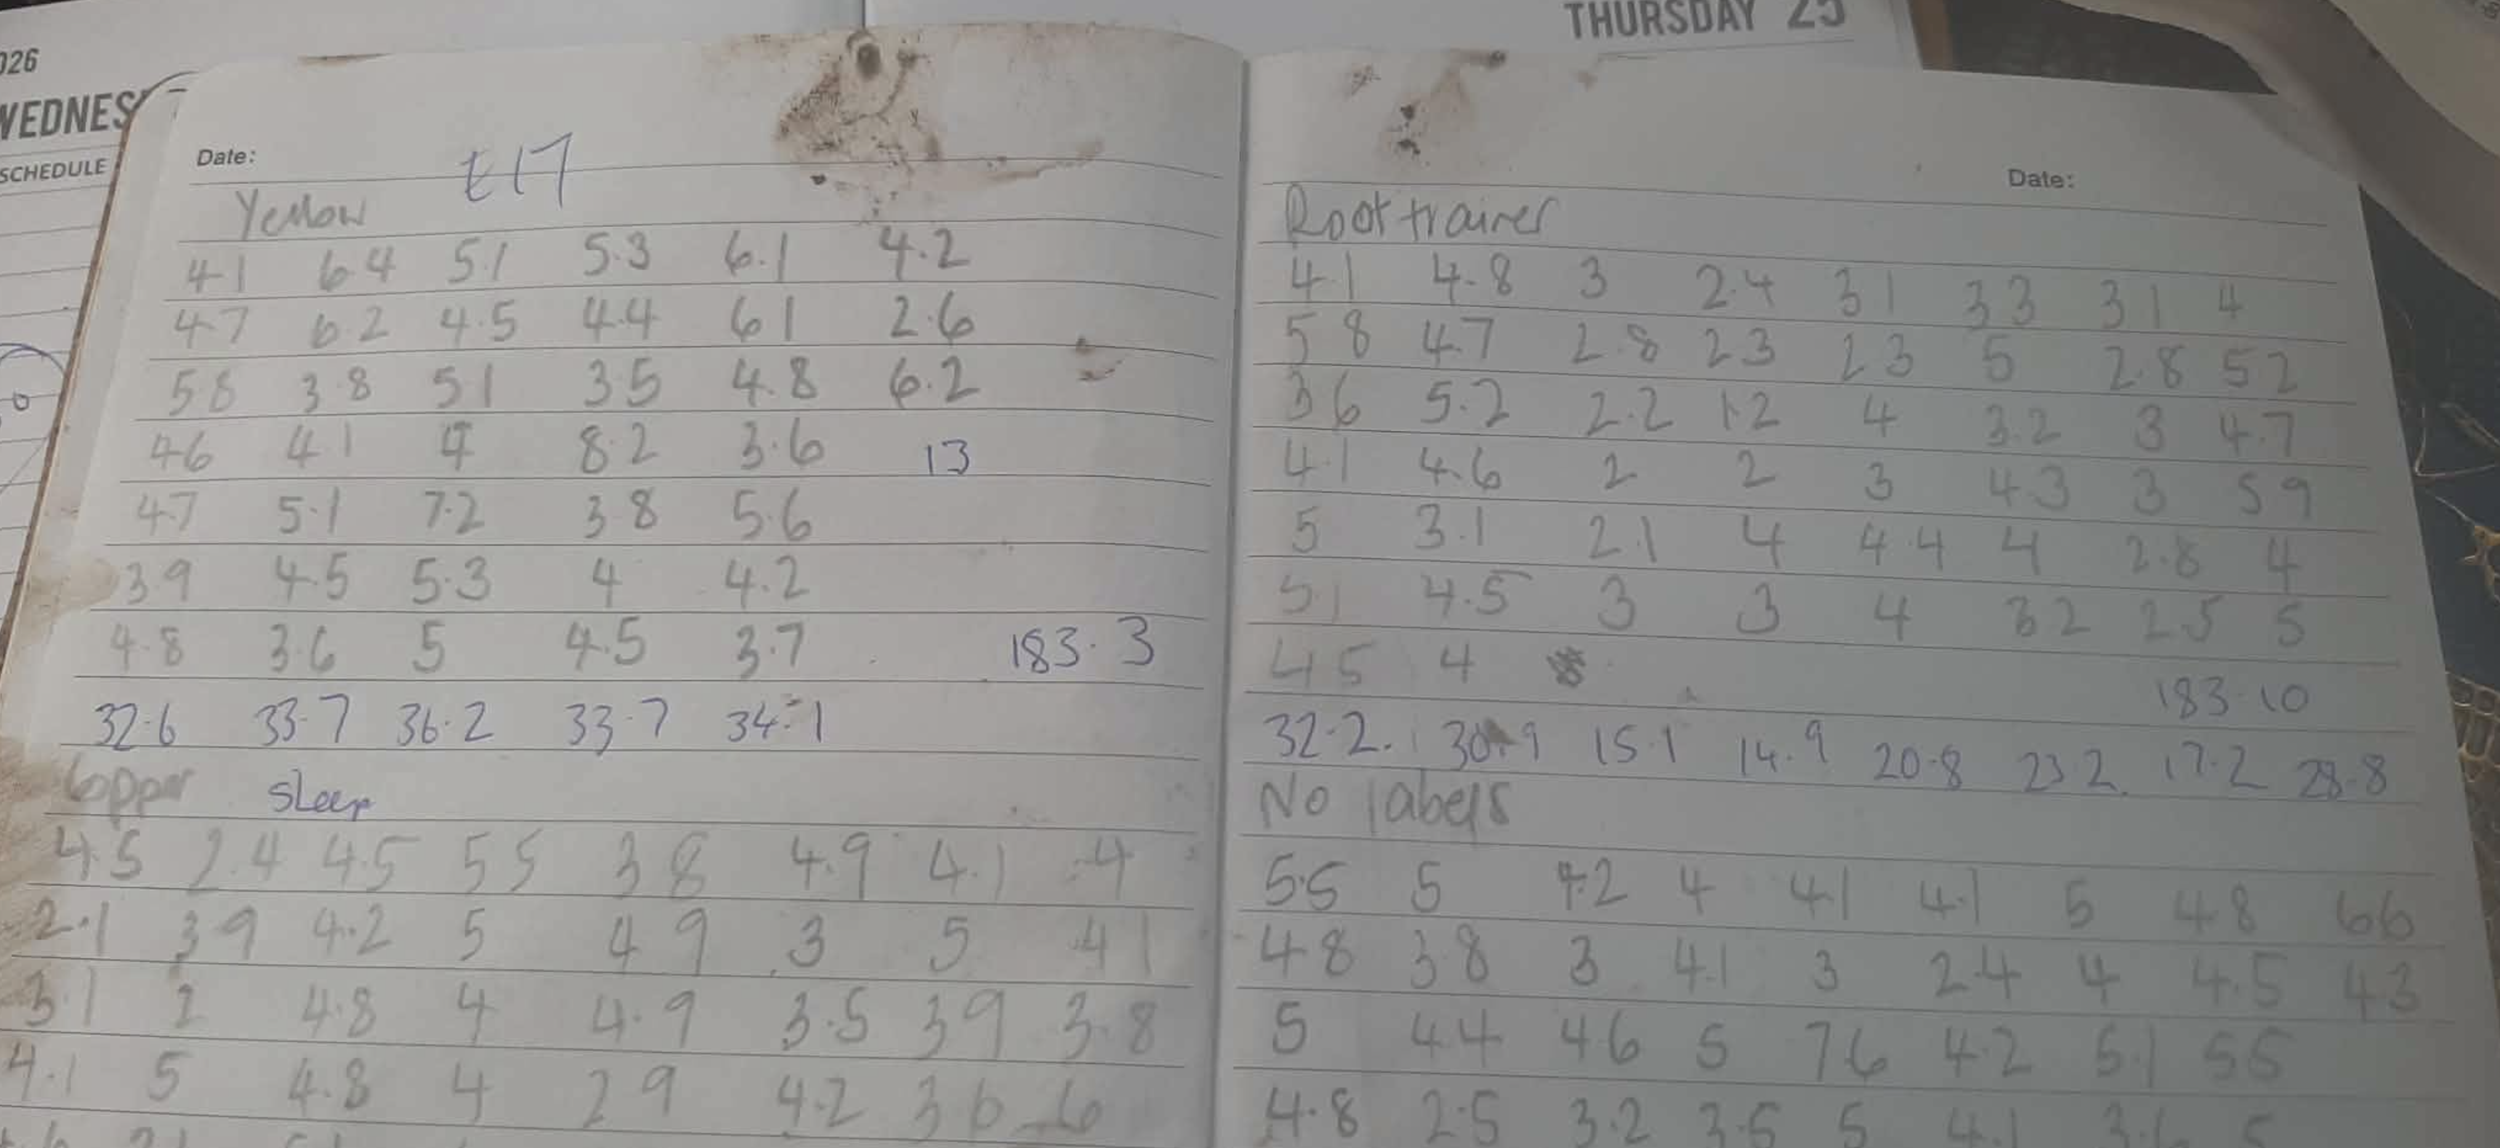 026
WEDNES
SCHEDULE
Date:
t17
Yellow
4.1 6.4 5.1 5.3 6.1 4.2
4.7 6.2 4.5 4.4 6 1 2.6
5 8 3 8 5 1 3 5 4.8 6.2
4 6 4 1 4 8.2 3.6 13
4.7 5.1 7.2 3 8 5.6
3.9 4.5 5.3 4 4.2
4.8 3.6 5 4.5 3.7 183.3
32.6 33.7 36.2 33.7 34.1
sleep
4.5 2.4 4.5 5 5 3 8 4.9 4.1 4
2.1 3 9 4.2 5 4 9 3 5 4 1
3.1 2 4.8 4 4.9 3.5 3 9 3.8
4.1 5 4.8 4 2 9 4.2 3 6 6
THURSDAY 25
Date:
Root trainer
4.1 4.8 3 2.4 3 1 3 3 3 1 4
5 8 4.7 2.8 2 3 2 3 5 2.8 5 2
3 6 5.2 2.2 1.2 4 3.2 3 4.7
4.1 4.6 2 2 3 4.3 3 5 9
5 3.1 2.1 4 4 4 4 2.8 4
5.1 4.5 3 3 4 3 2 2.5 5
4 5 4
183.10
32.2. 30.9 15.1 14.9 20.8 23 2 17.2 28.8
No labels
5.5 5 4.2 4 4.1 4.1 5 4 8 6 6
4 8 3 8 3 4.1 3 2 4 4 4.5 4 3
5 4 4 4 6 5 7 6 4.2 5.1 5 5
4.8 2.5 3.2 3.5 5 4.1 3.6 5